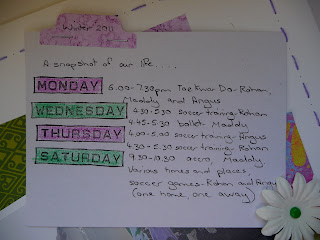 Winter 2011
A snapshot of our life....
MONDAY 6.00-7.30pm Tae Kwon Do- Rohan,
Maddy and Angus
WEDNESDAY 4.30-5.30 soccer training- Rohan
4.45-5.30 ballet- Maddy
THURSDAY 4.00-5.00 soccer training- Angus
4.30-5.30 soccer training- Rohan
SATURDAY 9.30-10.30 acro, Maddy
Various times and places,
soccer games- Rohan and Angus
(one home, one away)